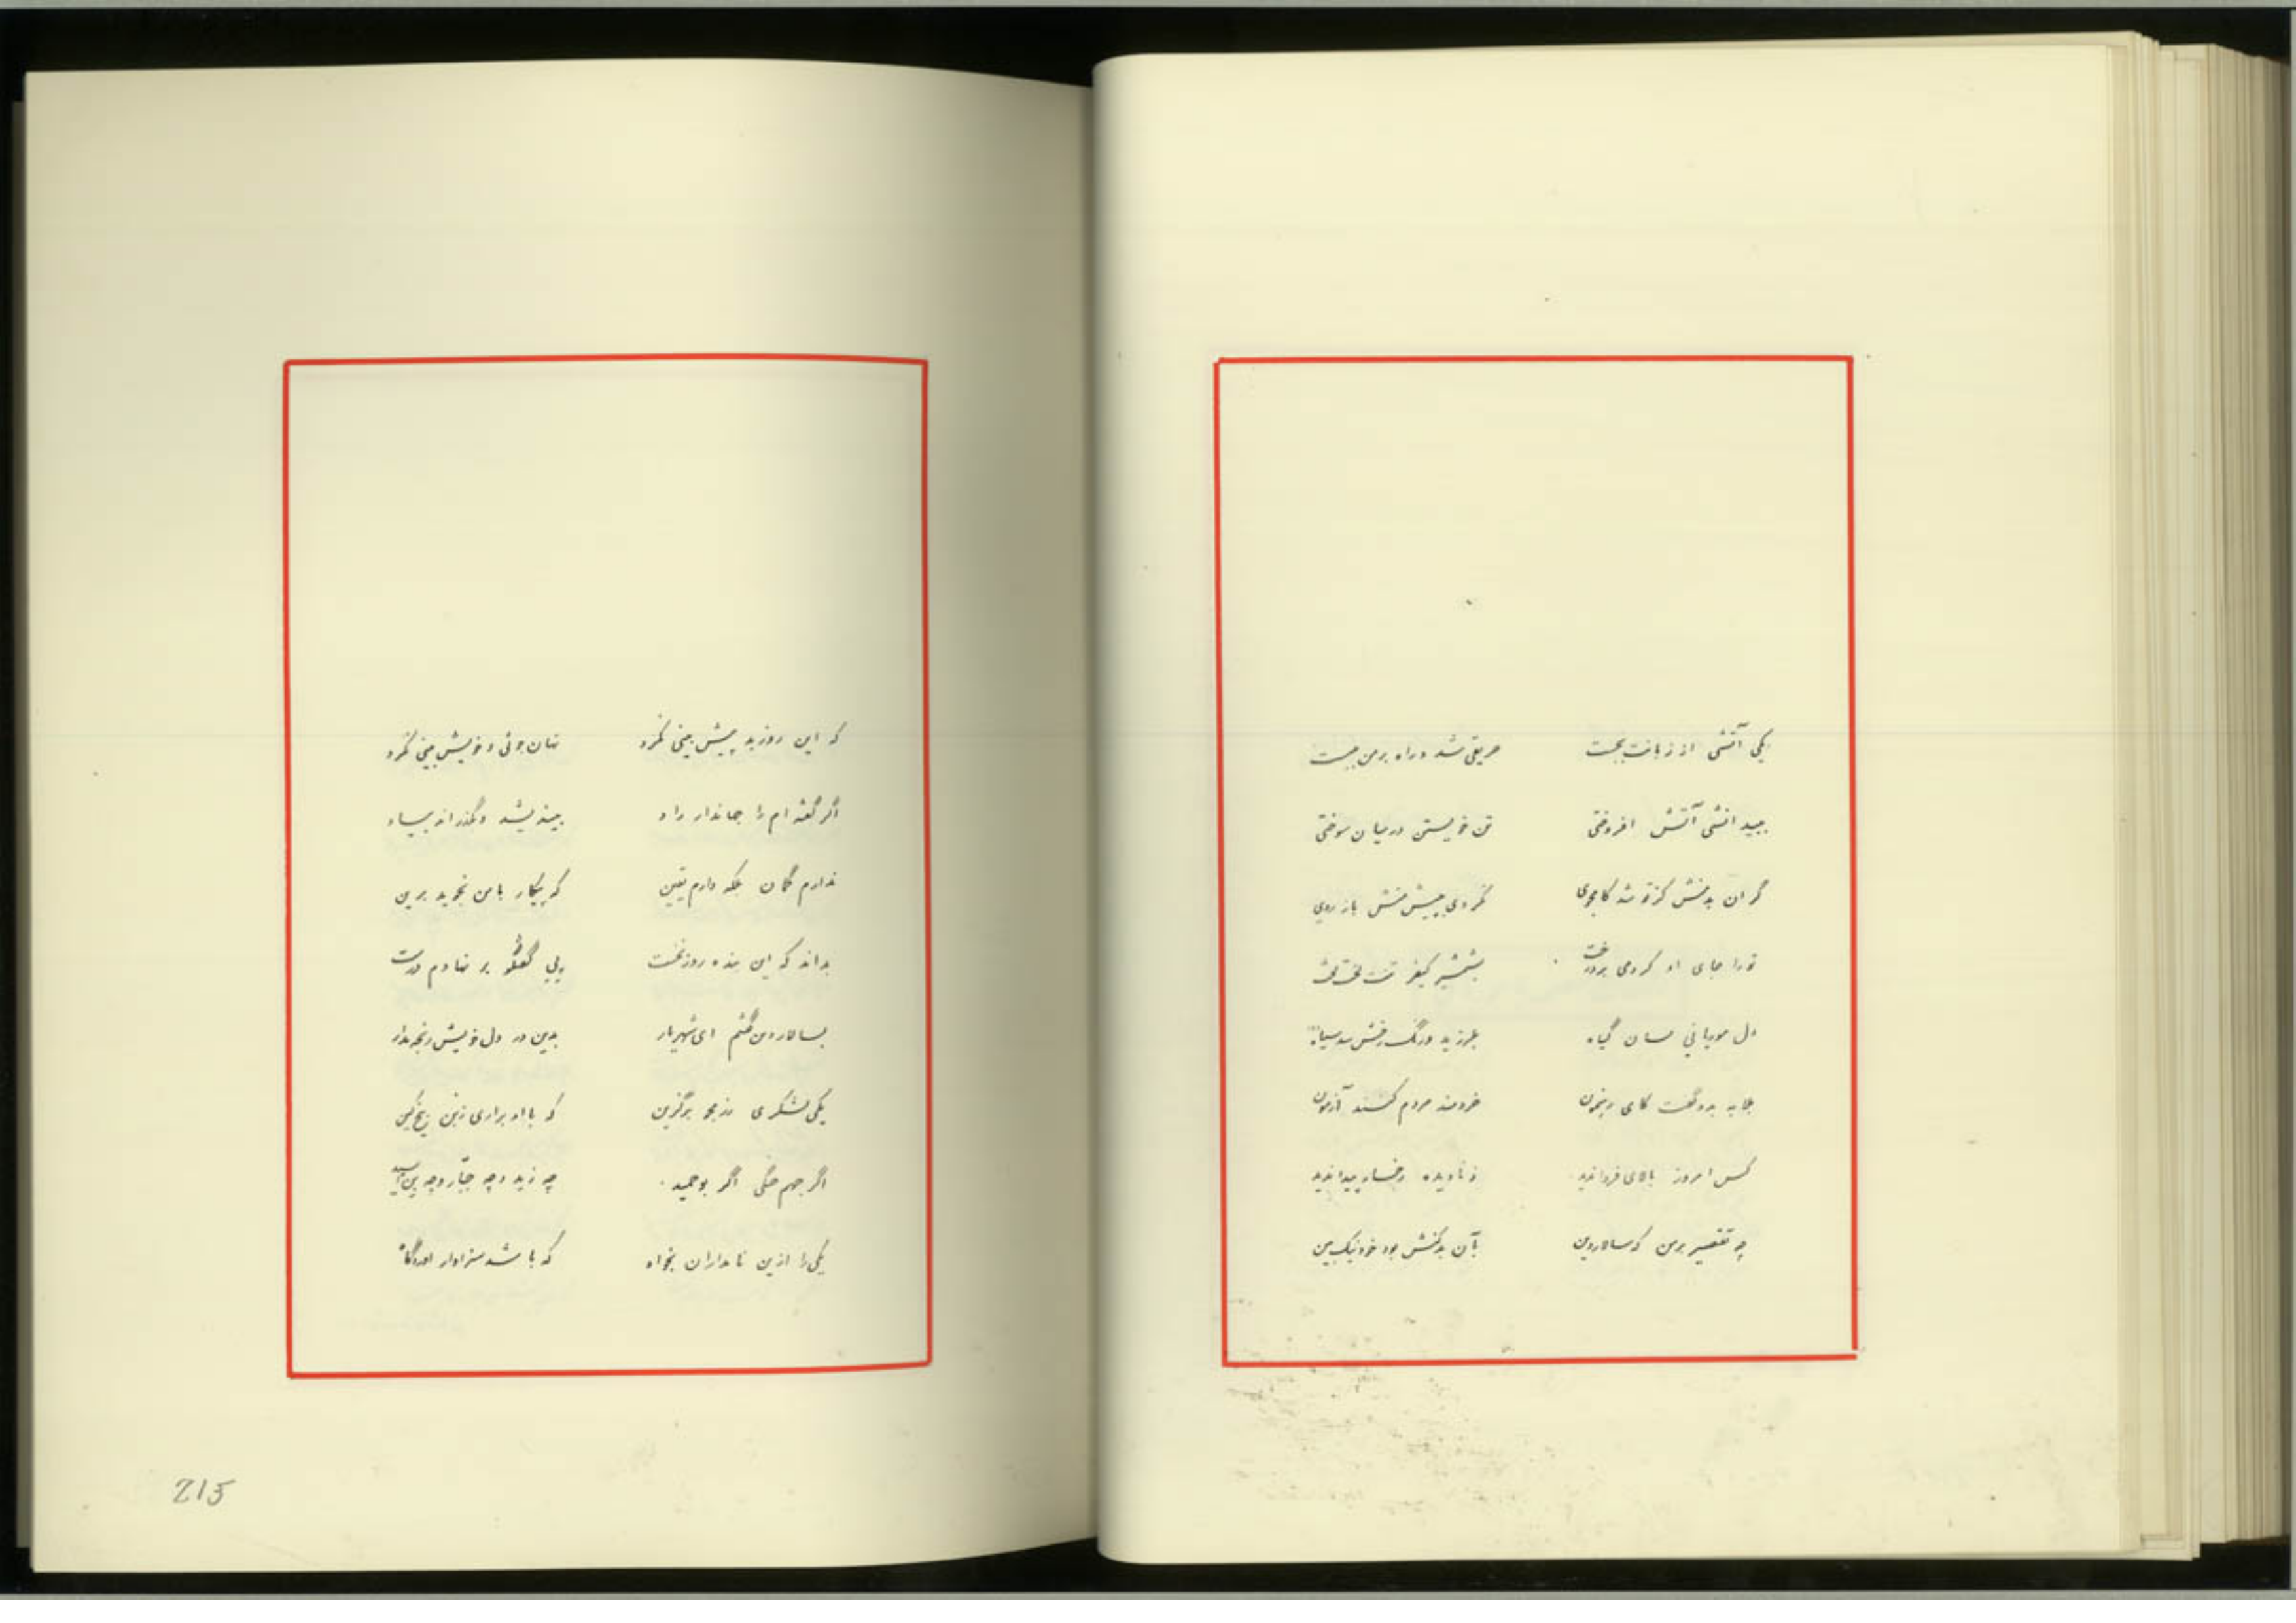 یکی آتشی از زبانت بجست حریقی شد و راه بر من ببست
ببیدانشی آتش افروختی تن خویستن در میان سوختی
گر ان بدمنش کزتو شد کامجوی نکردی به پیش منش باز روی
تو را جای او کردمی بردرخت بشمشیر کیفر تنت لخت لخت
دل موریانی بسان گیاه بلرزید و رنگ رخش شد سیاه
بلابه بدو گفت کای رهنمون خردمند مردم کنند آزمون
کس امروز بالای فردا ندید ز نادیده رخسار پیدا ندید
چه تقصیر بر من که سالار دین بآن بدکنش بود خود نیک بین
که این روز بد پیش بینی نکرد نهان جوئی و خویش بینی نکرد
اگر گفته ام را جهاندار راد بیندیشد و بگذراند بیاد
ندارم گمان بلکه دارم یقین که پیکار با من نجوید برین
بداند که این بنده روز نخست پی گفتگو بر نهادم درست
بسالار دین گفتم ای شهریار بدین در دل خویش رنجه مدار
یکی لشکری رزمجو برگزین که با او برآری زبن بیخ کین
اگر جهم جنگی اگر بوحمید چه زید و چه جبار و چه بن اسید
یکی را ازین نامداران بخواه که باشد سزاوار اوردگاه
215